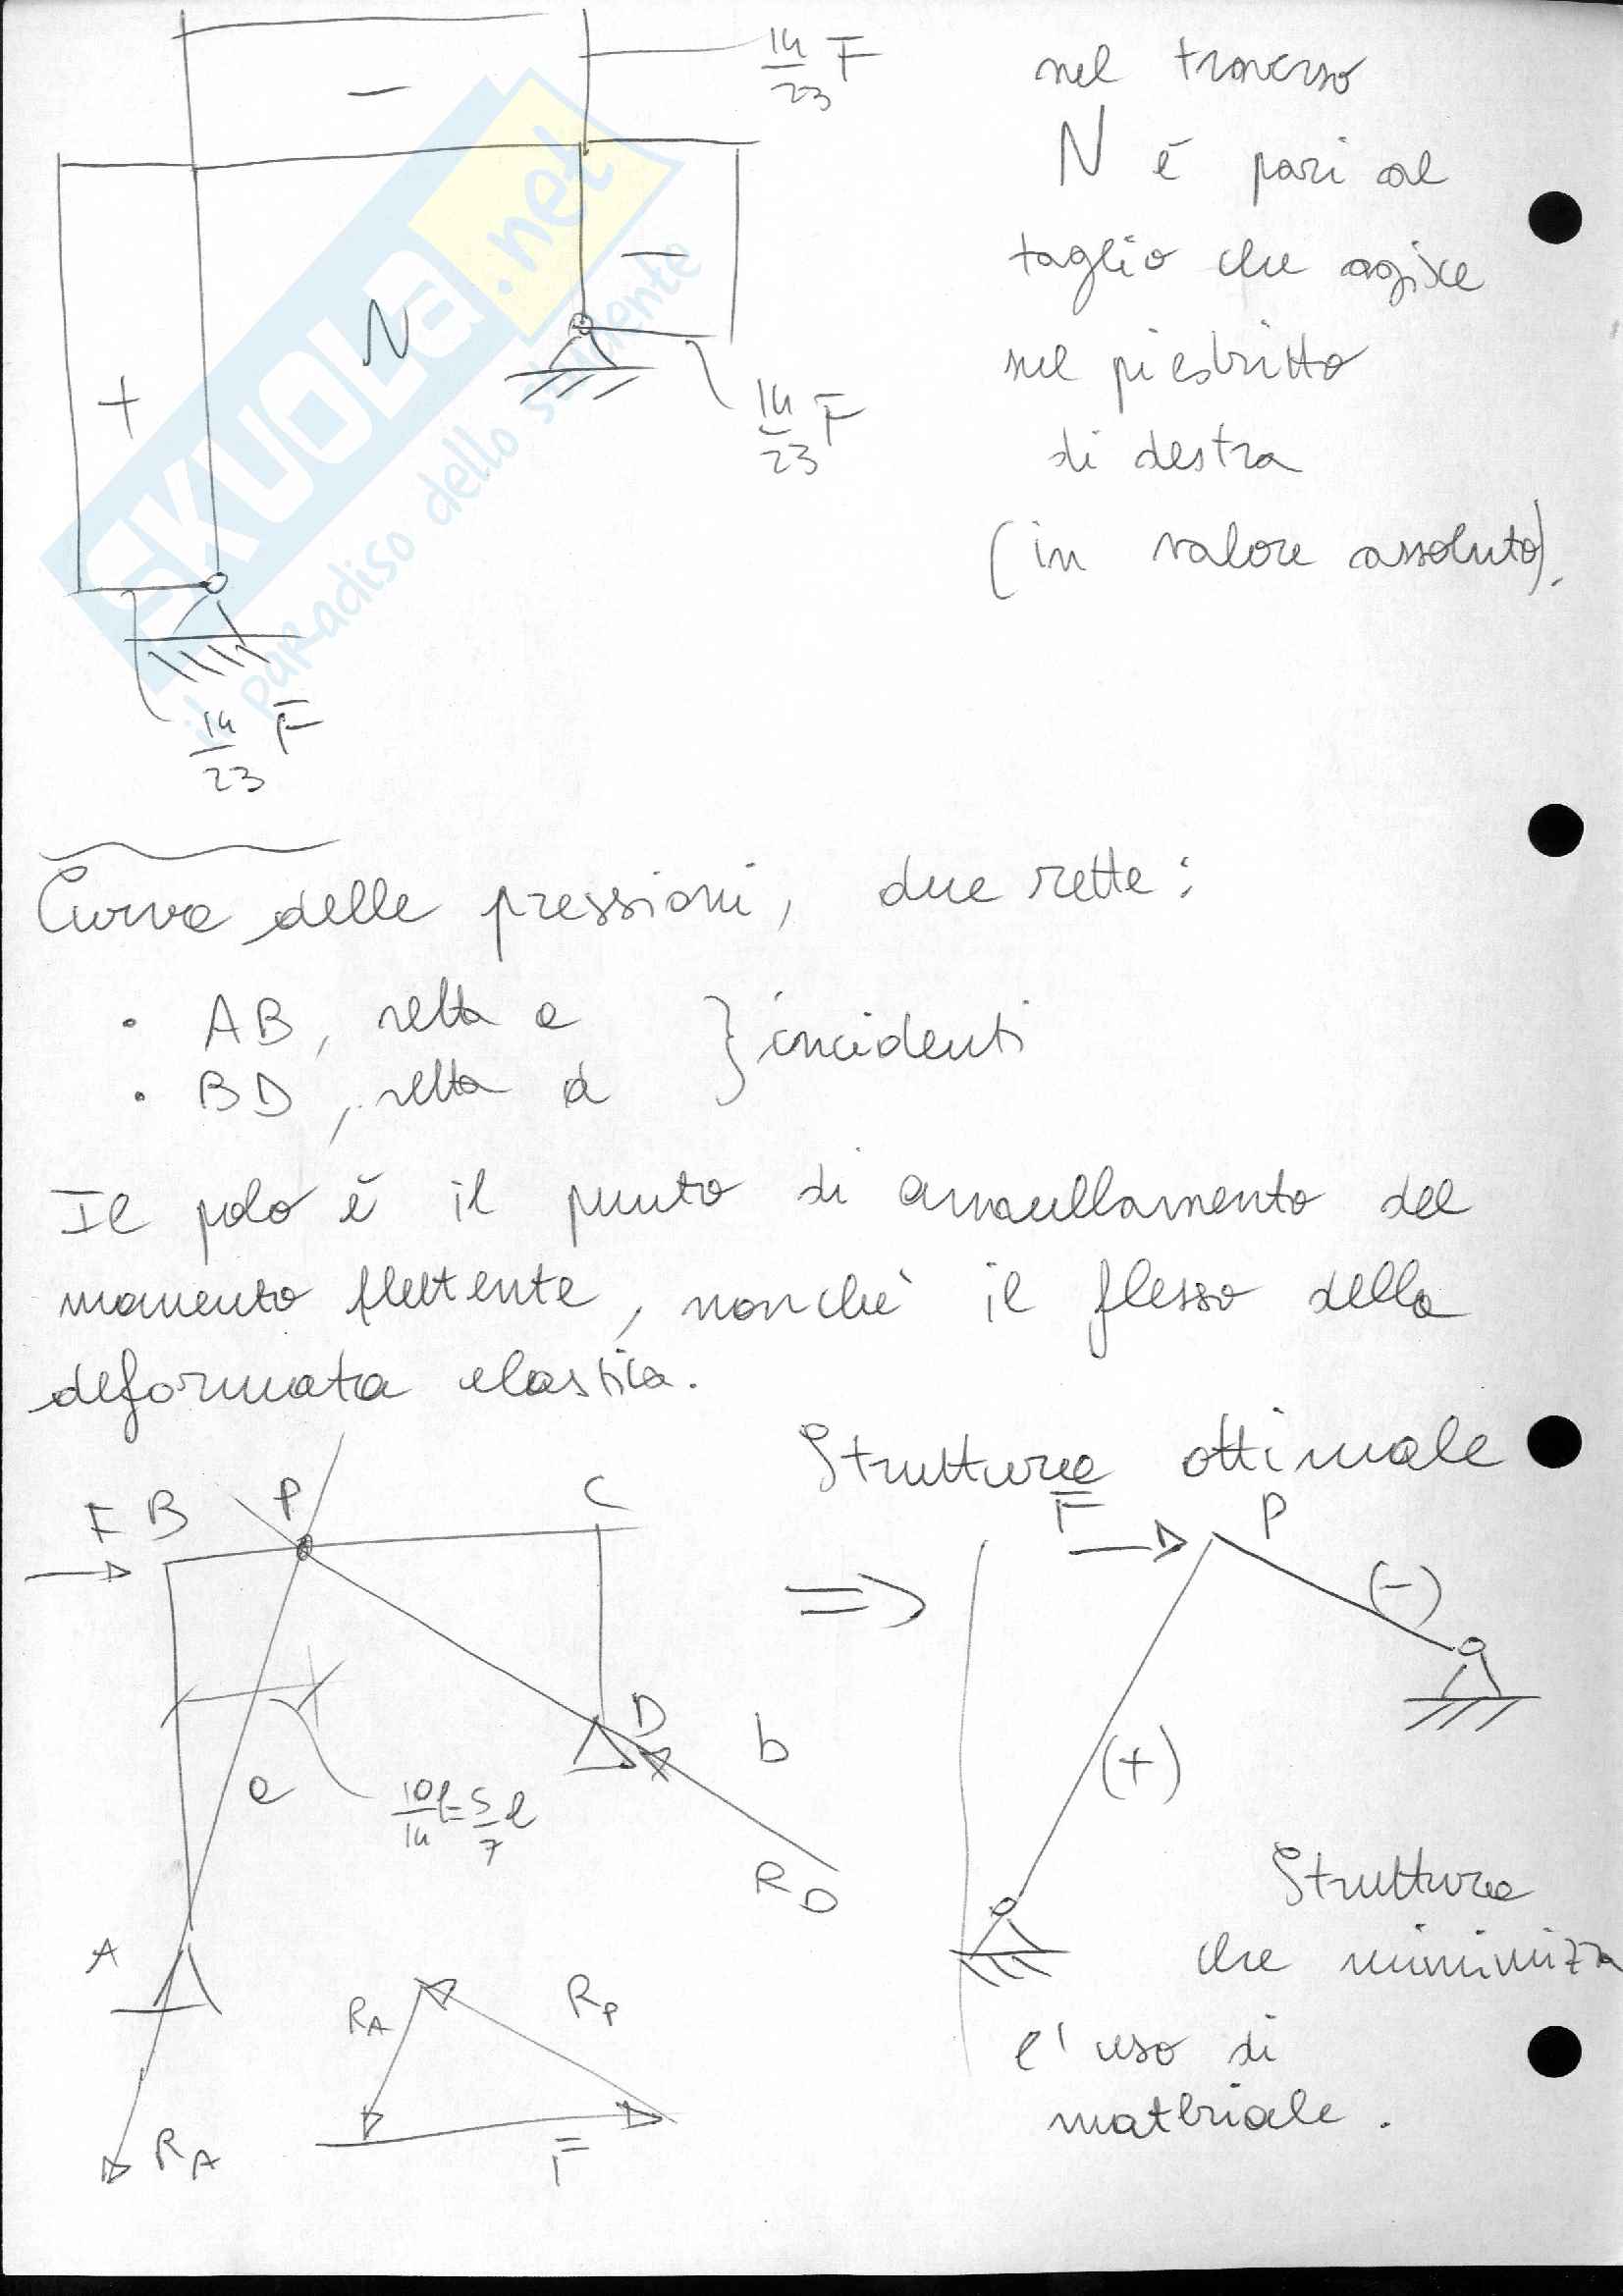 14/23 F
nel traverso
N è pari al
taglio che agisce
nel piedritto
di destra
(in valore assoluto).
–
+
N
–
14/23 F
14/23 F
SKUOLA.net
il paradiso dello studente
Curva delle pressioni, due rette:
• AB, retta a
• BD, retta d
} incidenti
Il polo è il punto di annullamento del
momento flettente, nonchè il flesso della
deformata elastica.
Struttura ottimale
F B P C
F P
⇒
(-)
D
b
(+)
a
10/14 l = 5/7 l
R_D
A
R_A
R_A
R_P
F
Struttura
che minimizza
l'uso di
materiale.